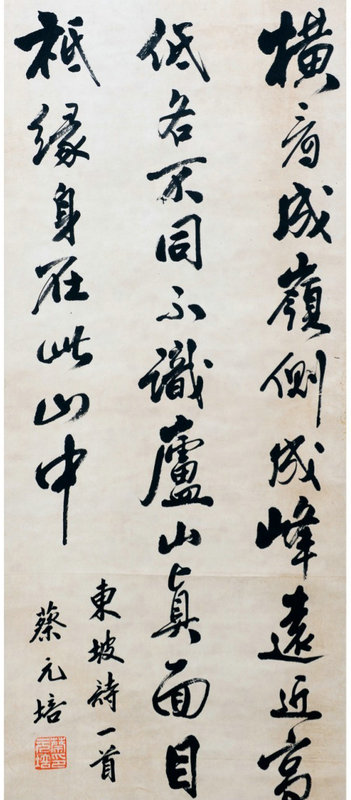 橫看成嶺側成峰遠近高
低各不同不識廬山真面目
祗緣身在此山中
東坡詩一首
蔡元培
蔡元培